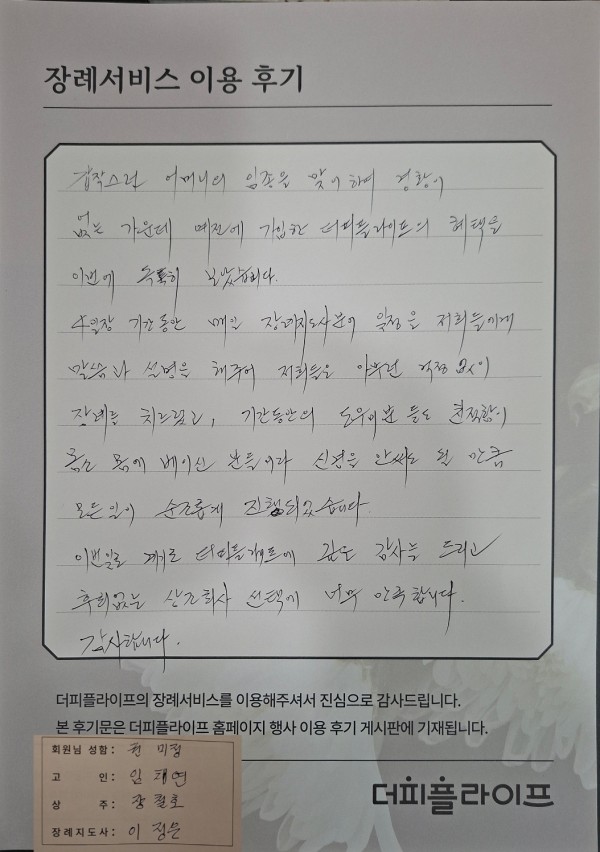 장례서비스 이용 후기
갑작스런 어머니의 임종을 맞이하여 경황이
없는 가운데 예전에 가입한 더피플라이프의 혜택을
이번에 톡톡히 보았습니다.
4일장 기간동안 매일 장례지도사분이 일정을 저희들에게
말씀과 설명을 해주어 저희들은 아무런 걱정없이
장례를 치르었고, 기간동안의 도우미분들도 친절함이
몸에 베이신 분들이라 신경을 안써도 될 만큼
모든일이 순조롭게 진행되었습니다.
이번일로 계기로 더피플라이프에 깊은 감사를 드리고
후회없는 상조회사 선택에 너무 만족합니다.
감사합니다.
더피플라이프의 장례서비스를 이용해주셔서 진심으로 감사드립니다.
본 후기문은 더피플라이프 홈페이지 행사 이용 후기 게시판에 기재됩니다.
회원님 성함 : 권 미정
고 인 : 임 태연
상 주 : 장 철호
장례지도사 : 이 정은
더피플라이프